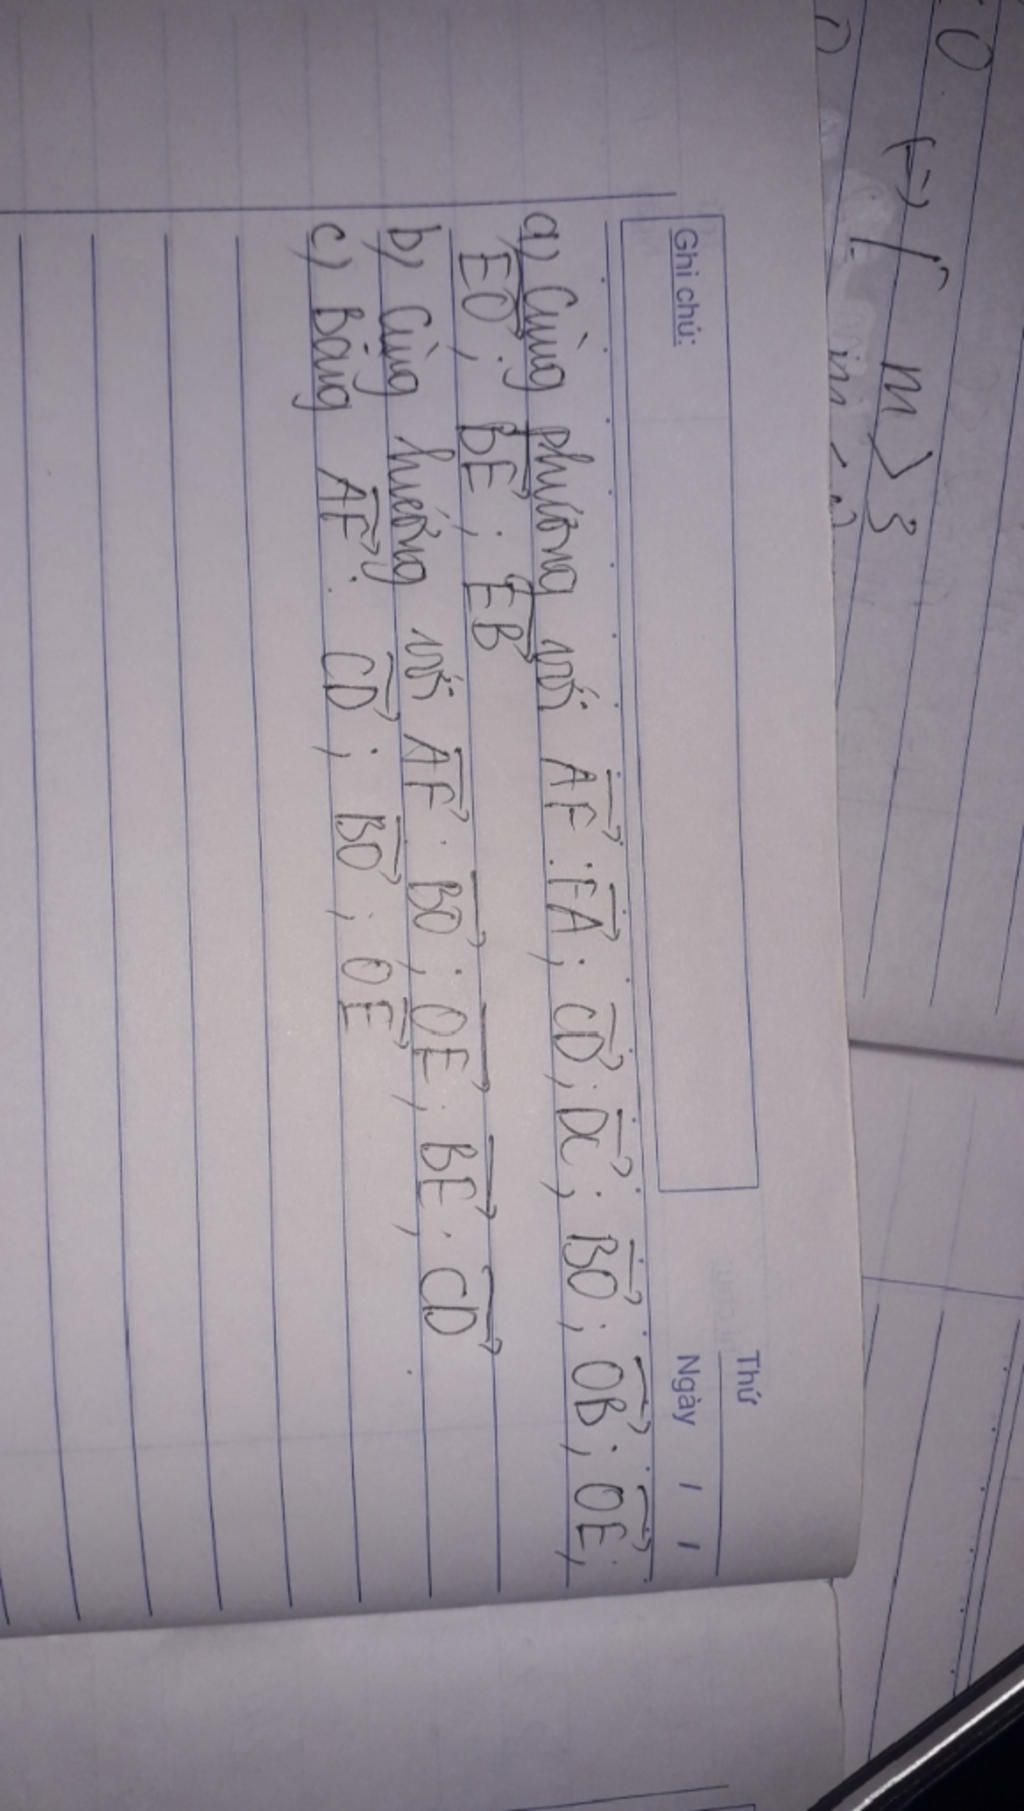 0 ↔ { m > 3
Ghi chú:
Thứ
Ngày / /
a) Cùng phương với AF⃗ : FA⃗ ; CD⃗ ; DC⃗ ; BO⃗ ; OB⃗ ; OE⃗ ;
EO⃗ ; BE⃗ ; EB⃗
b) Cùng hướng với AF⃗ : BO⃗ ; OE⃗ ; BE⃗ ; CD⃗
c) Bằng AF⃗ : CD⃗ ; BO⃗ ; OE⃗